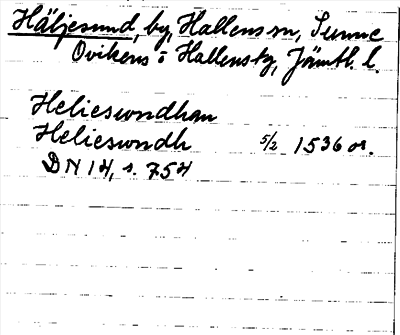 Häljesund, by, Hallens sn, Sunne
Ovikens o Hallens tg, Jämtl. l.
Helieswndhan
Helieswndh 5/2 1536 or.
DN 14, s. 754